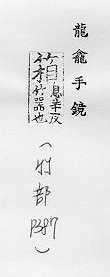 龍龕手鏡
息羊反
竹器也
(竹部
P.387
)